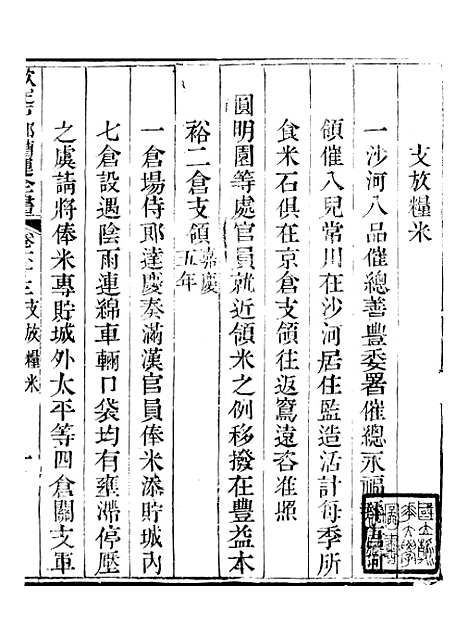 支放糧米
一沙河八品催總善豐委署催總永福
領催八兒常川在沙河居住監造活計每季所
食米石俱在京倉支領往返寫遠咨准照
圓明園等處官員就近領米之例移撥在豐益本
裕二倉支領嘉慶五年
一倉場侍郎達慶奏滿漢官員俸米添貯城內
七倉設遇陰雨連綿車輛口袋均有壅滯停壓
之虞請將俸米專貯城外太平等四倉關支軍
欽定戶部漕運全書 卷六十三 支放糧米 一